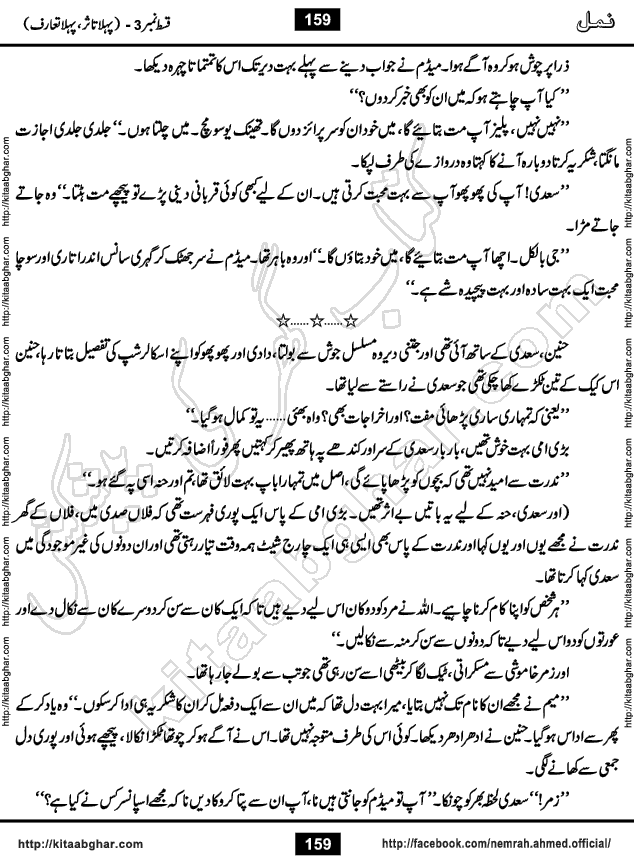 نمل
159
قسط نمبر 3 - (پہلا تاثر، پہلا تعارف)
ذرا پر جوش ہو کر وہ آگے ہوا۔ میڈم نے جواب دینے سے پہلے بہت دیر تک اس کا تمتماتا چہرہ دیکھا۔
’’کیا آپ چاہتے ہو کہ میں ان کو بھی خبر کر دوں؟‘‘
’’نہیں نہیں، پلیز آپ مت بتائیے گا، میں خود ان کو سرپرائز دوں گا۔ تھینک یو سو مچ۔ میں چلتا ہوں۔‘‘ جلدی جلدی اجازت
مانگتا، شکریہ کرتا دوبارہ آنے کا کہتا وہ دروازے کی طرف لپکا۔
’’سعدی! آپ کی پھوپھو آپ سے بہت محبت کرتی ہیں۔ ان کے لیے کبھی کوئی قربانی دینی پڑے تو پیچھے مت ہٹنا۔‘‘ وہ جاتے
جاتے مڑا۔
’’جی بالکل۔ اچھا آپ مت بتائیے گا، میں خود بتاؤں گا۔‘‘ اور وہ باہر تھا۔ میڈم نے سر جھٹک کر گہری سانس اندر اتاری اور سوچا
محبت ایک بہت سادہ اور بہت پیچیدہ شے ہے۔‘‘
☆......☆......☆
حنین، سعدی کے ساتھ آئی تھی اور جتنی دیر وہ مسلسل جوش سے بولتا، دادی اور پھوپھو کو اپنے اسکالرشپ کی تفصیل بتاتا رہا، حنین
اس کیک کے تین ٹکڑے کھا چکی تھی جو سعدی نے راستے سے لیا تھا۔
’’یعنی کہ تمہاری ساری پڑھائی مفت؟ اور اخراجات بھی؟ واہ بھئی...... یہ تو کمال ہو گیا۔‘‘
بڑی امی بہت خوش تھیں، بار بار سعدی کے سر اور کندھے پہ ہاتھ پھیر کر کہتیں پھر فوراً اضافہ کرتیں۔
’’ندرت سے امید نہیں تھی کہ بچوں کو پڑھا پائے گی، اصل میں تمہارا باپ بہت لائق تھا، تم اور حنہ اسی پہ گئے ہو۔‘‘
(اور سعدی، حنہ کے لیے یہ باتیں بے اثر تھیں۔ بڑی امی کے پاس ایک پوری فہرست تھی کہ فلاں صدی میں، فلاں کے گھر
ندرت نے مجھے یوں اور یوں کہا اور ندرت کے پاس بھی ایسی ہی ایک چارج شیٹ ہمہ وقت تیار رہتی تھی اور ان دونوں کی غیر موجودگی میں
سعدی کہا کرتا تھا۔
’’ہر شخص کو اپنا کام کرنا چاہیے۔ اللہ نے مرد کو دو کان اس لیے دیے ہیں تا کہ ایک کان سے سن کر دوسرے کان سے نکال دے اور
عورتوں کو دو اس لیے دیے تا کہ دونوں سے سن کر منہ سے نکالیں۔‘‘
اور زمر خاموشی سے مسکراتی، ٹیک لگا کر بیٹھی اسے سن رہی تھی جو تب سے بولے جا رہا تھا۔
’’میم نے مجھے ان کا نام تک نہیں بتایا، میرا بہت دل تھا کہ میں ان سے ایک دفعہ مل کر ان کا شکریہ ہی ادا کر سکوں۔‘‘ وہ یاد کر کے
پھر سے اداس ہو گیا۔ حنین نے ادھر ادھر دیکھا۔ کوئی اس کی طرف متوجہ نہیں تھا۔ اس نے آگے ہو کر چوتھا ٹکڑا نکالا، پیچھے ہوئی اور پوری دل
جمعی سے کھانے لگی۔
’’زمر!‘‘ سعدی لحظہ بھر کو چونکا۔ ’’آپ تو میڈم کو جانتی ہیں نا، آپ ان سے پتا کروا دیں نا کہ مجھے اسپانسر کس نے کیا ہے؟‘‘
http://kitaabghar.com
159
http://facebook.com/nemrah.ahmed.official/
http://kitaabghar.com
http://kitaabghar.com
http://kitaabghar.com
http://kitaabghar.com
http://kitaabghar.com
http://kitaabghar.com
http://kitaabghar.com
http://kitaabghar.com
http://kitaabghar.com
http://kitaabghar.com
http://kitaabghar.com
http://kitaabghar.com
کتاب گھر کی پیشکش
kitaabghar.com